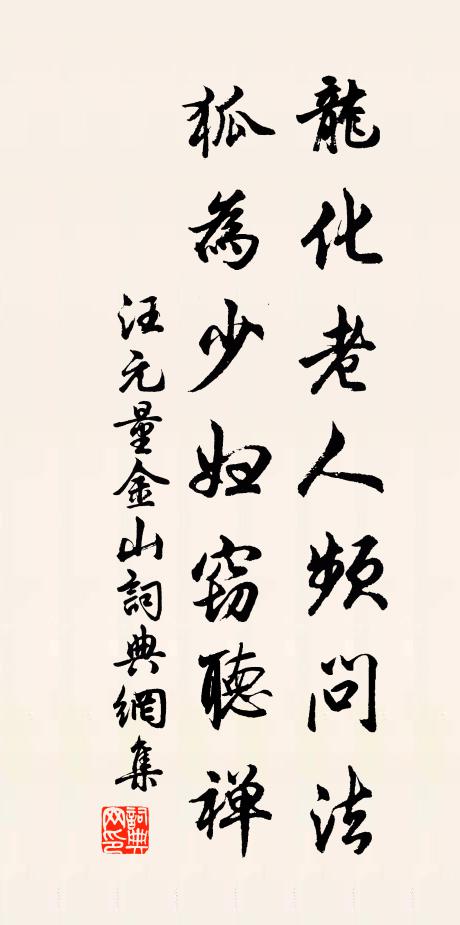 龍化老人頻問法
狐為少婦竊聽禅
汪元量金山詞典網集
詞典网印